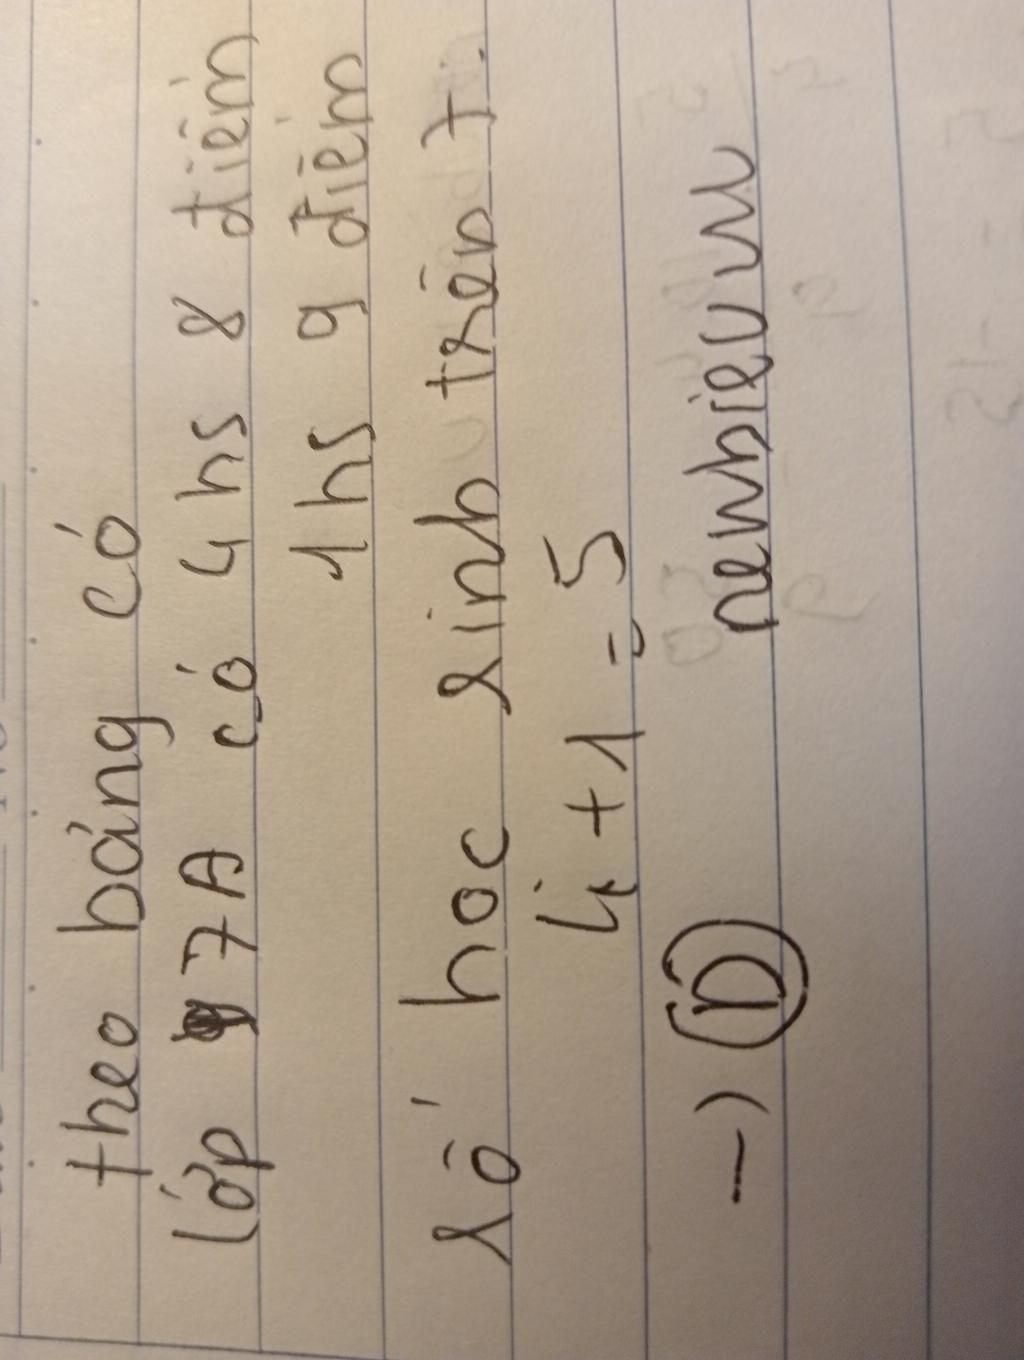 theo bảng có
lớp 7A có 4 hs 8 điểm
1 hs 9 điểm
số học sinh trên 7.
4 + 1 = 5
→ D